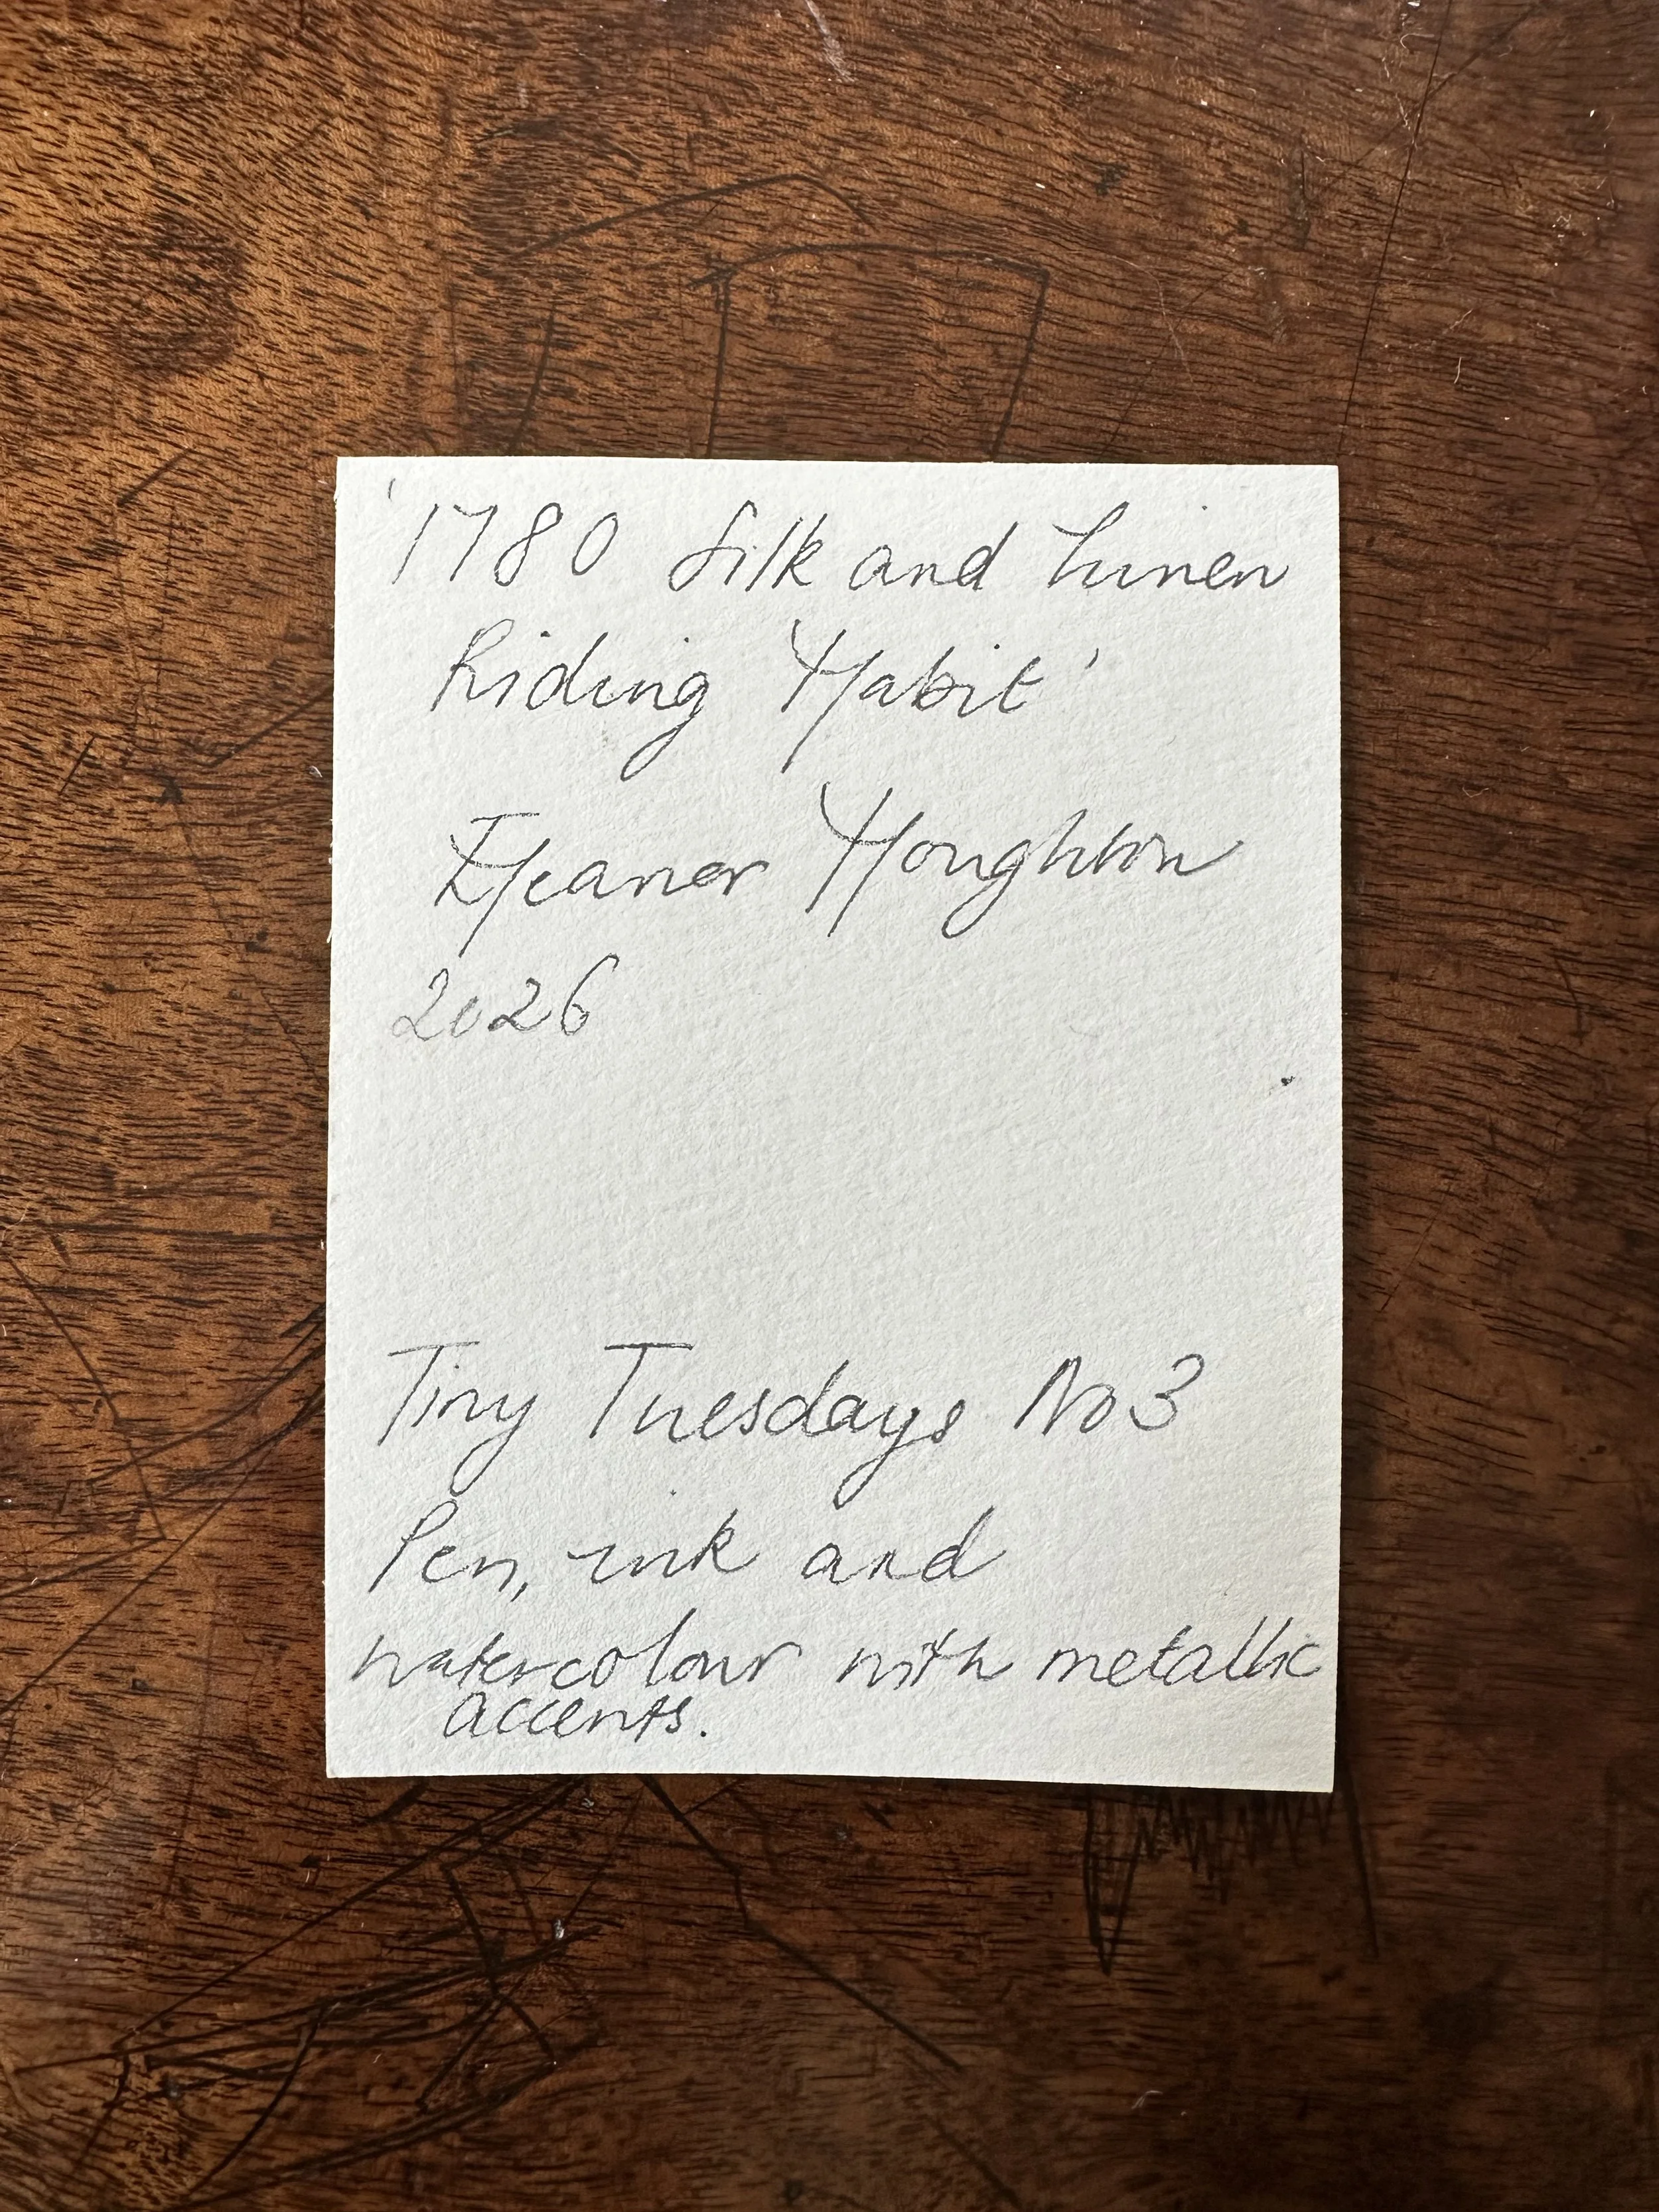 '1780 Silk and Linen
Riding Habit'
Eleanor Houghton
2026
Tiny Tuesdays No 3
Pen, ink and
watercolour with metallic
accents.